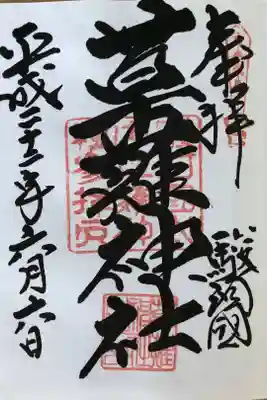 奉拝
駿河國
草薙神社
平成二十二年六月六日